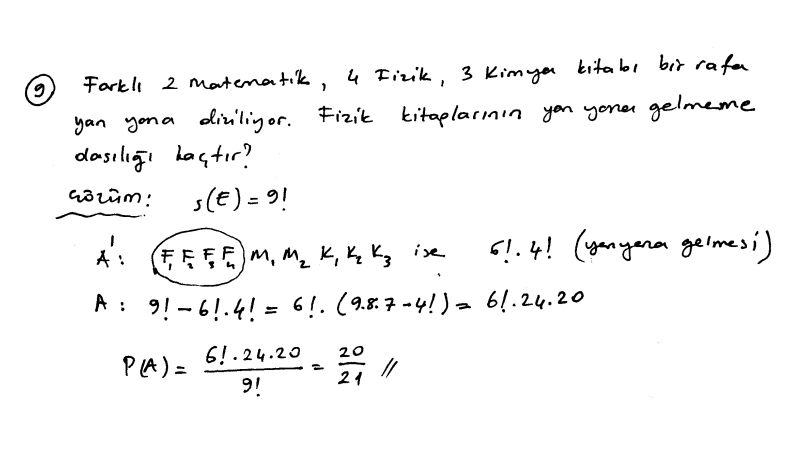 9 Farklı 2 matematik, 4 Fizik, 3 Kimya kitabı bir rafa
yan yana diziliyor. Fizik kitaplarının yan yana gelmeme
olasılığı kaçtır?
Çözüm: s(E) = 9!
A': F₁ F₂ F₃ F₄ M₁ M₂ K₁ K₂ K₃ ise 6!.4! (yanyana gelmesi)
A: 9! - 6!.4! = 6!.(9.8.7 - 4!) = 6!.24.20
P(A) = 6!.24.20 / 9! = 20/21 //